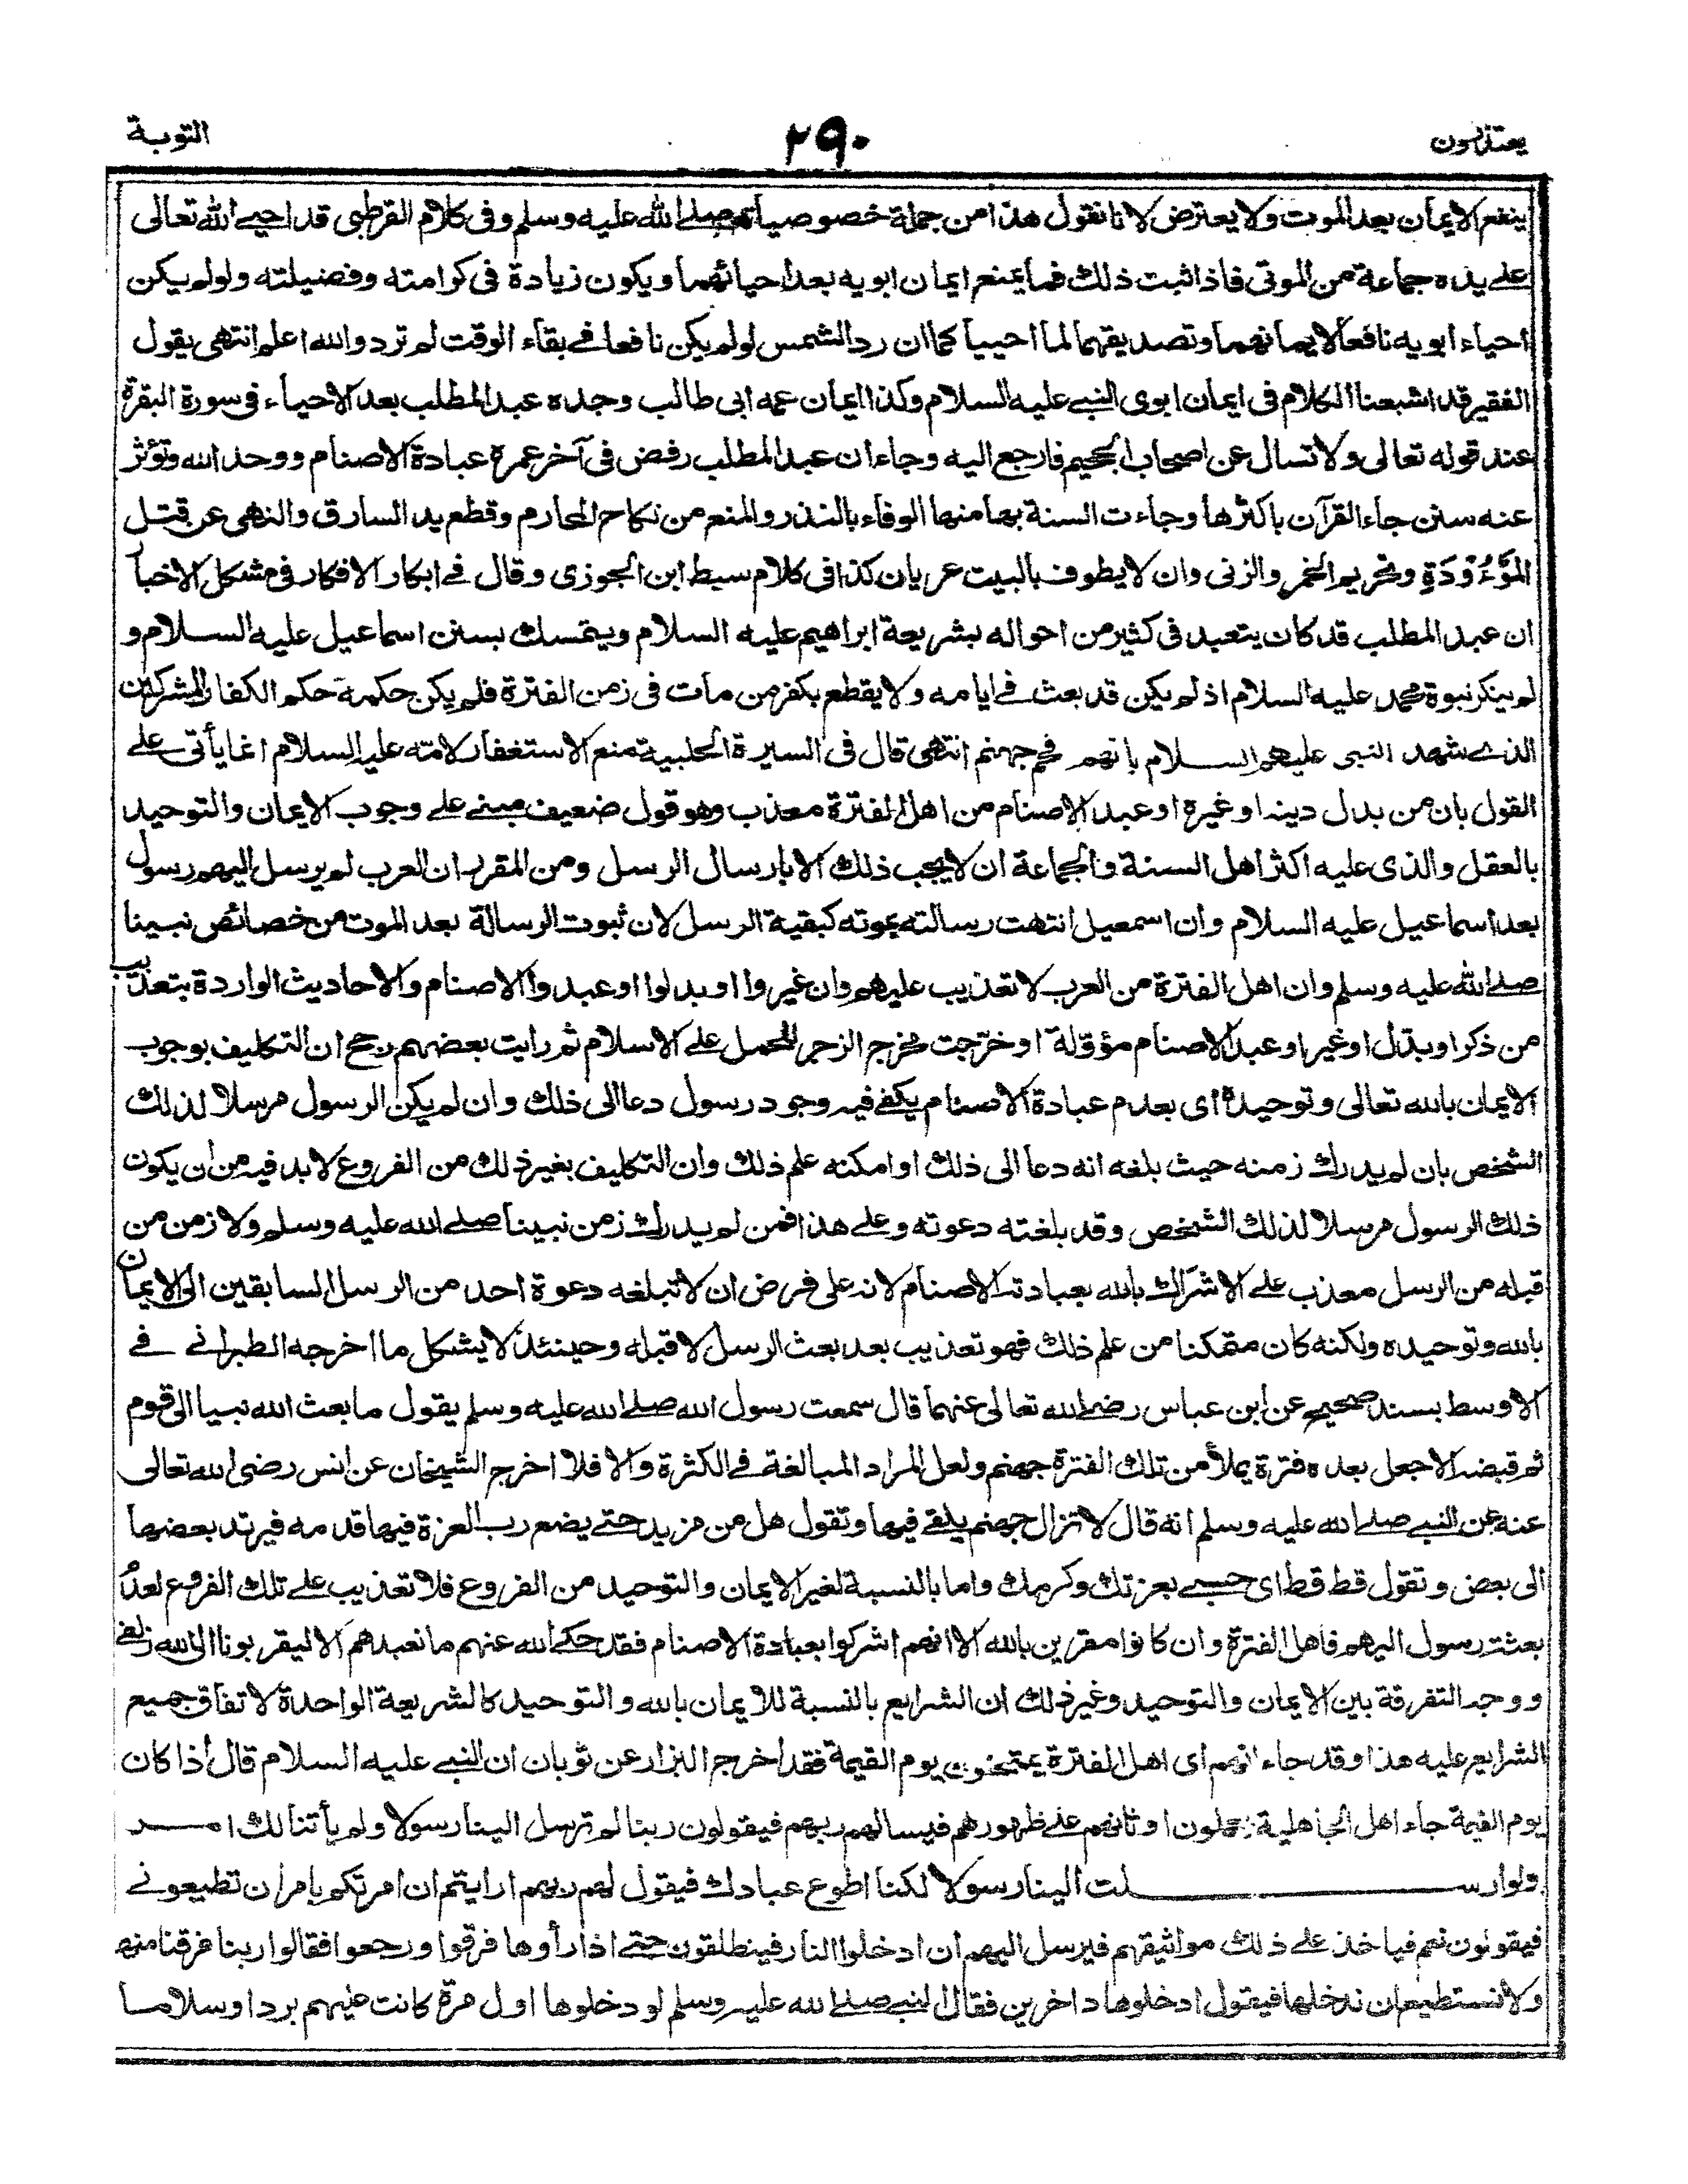 يعتذرون
٢٩٠
التوبة
ينفع الايمان بعد الموت ولا يعترض لانا نقول هذا من جملة خصوصياته صلى الله عليه وسلم وفى كلام القرطبى قد احيى الله تعالى
على يده جماعة من الموتى فاذا ثبت ذلك فما يمنع ايمان ابويه بعد احيائهما ويكون زيادة فى كرامته وفضيلته ولو لم يكن
احياء ابويه نافعا لايمانهما وتصديقهما لما احييا كما ان رد الشمس لو لم يكن نافعا فى بقاء الوقت لم ترد والله اعلم انتهى يقول
الفقير قد اشبعنا الكلام فى ايمان ابوى النبى عليه السلام وكذا ايمان عمه ابى طالب وجده عبد المطلب بعد الاحياء فى سورة البقرة
عند قوله تعالى ولا تسال عن اصحاب الجحيم فارجع اليه وجاء ان عبد المطلب رفض فى آخر عمره عبادة الاصنام ووحد الله وتؤثر
عنه سنن جاء القرآن باكثرها وجاءت السنة بها منها الوفاء بالنذر والمنع من نكاح المحارم وقطع يد السارق والنهى عن قتل
المَوْءُوْدَةِ وتحريم الخمر والزنى وان لا يطوف بالبيت عريان كذا فى كلام سبط ابن الجوزى وقال فى ابكار الافكار فى مشكل الاخبار
ان عبد المطلب قد كان يتعبد فى كثير من احواله بشريعة ابراهيم عليه السلام ويتمسك بسنن اسماعيل عليه السلام و
لم ينكر نبوة محمد عليه السلام اذ لم يكن قد بعث فى ايامه ولا يقطع بكفر من مات فى زمن الفترة فلم يكن حكمه حكم الكفار المشركين
الذى شهد النبى عليهم السلام بانهم فحم جهنم انتهى قال فى السيرة الحلبية منع الاستغفار لامه عليه السلام انما يأتى على
القول بان من بدل دينه او غيره او عبد الاصنام من اهل الفترة معذب وهو قول ضعيف مبنى على وجوب الايمان والتوحيد
بالعقل والذى عليه اكثر اهل السنة والجماعة ان لا يجب ذلك الا بارسال الرسل ومن المقرر ان العرب لم يرسل اليهم رسول
بعد اسماعيل عليه السلام وان اسمعيل انتهت رسالته بموته كبقية الرسل لان ثبوت الرسالة بعد الموت من خصائص نبينا
صلى الله عليه وسلم وان اهل الفترة من العرب لا تعذيب عليهم وان غيروا او بدلوا او عبدوا الاصنام والاحاديث الواردة بتعذيب
من ذكر او بدل او غير او عبد الاصنام مؤولة او خرجت مخرج الزجر للحمل على الاسلام ثم رايت بعضهم رجح ان التكليف بوجوب
الايمان بالله تعالى وتوحيده اى بعدم عبادة الاصنام يكفى فيه وجود رسول دعا الى ذلك وان لم يكن الرسول مرسلا لذلك
الشخص بان لم يدرك زمنه حيث بلغه انه دعا الى ذلك او امكنه علم ذلك وان التكليف بغير ذلك من الفروع لا بد فيه من ان يكون
ذلك الرسول مرسلا لذلك الشخص وقد بلغته دعوته وعلى هذا فمن لم يدرك زمن نبينا صلى الله عليه وسلم ولا زمن من
قبله من الرسل معذب على الاشراك بالله بعبادته الاصنام لانه على فرض ان لا تبلغه دعوة احد من الرسل السابقين الى الايمان
بالله وتوحيده ولكنه كان متمكنا من علم ذلك فهو تعذيب بعد بعث الرسل لا قبله وحينئذ لا يشكل ما اخرجه الطبرانى فى
الاوسط بسند صحيح عن ابن عباس رضى الله تعالى عنهما قال سمعت رسول الله صلى الله عليه وسلم يقول ما بعث الله نبيا الى قوم
ثم قبضه الا جعل بعده فترة يملأ من تلك الفترة جهنم ولعل المراد المبالغة فى الكثرة والا فلا اخرج الشيخان عن انس رضى الله تعالى
عنه عن النبى صلى الله عليه وسلم انه قال لا تزال جهنم يلقى فيها وتقول هل من مزيد حتى يضع رب العزة فيها قدمه فيرتد بعضها
الى بعض وتقول قط قط اى حسبى بعزتك وكرمك واما بالنسبة لغير الايمان والتوحيد من الفروع فلا تعذيب على تلك الفروع لعدم
بعثت رسول اليهم فاهل الفترة وان كانوا مقرين بالله الا انهم اشركوا بعبادة الاصنام فقد حكى الله عنهم ما نعبدهم الا ليقربونا الى الله زلفى
ووجه التفرقة بين الايمان والتوحيد وغير ذلك ان الشرايع بالنسبة للايمان بالله والتوحيد كالشريعة الواحدة لاتفاق جميع
الشرايع عليه هذا وقد جاء انهم اى اهل الفترة يمتحنون يوم القيمة فقد اخرج البزار عن ثوبان ان النبى عليه السلام قال اذا كان
يوم القيمة جاء اهل الجاهلية يحملون اوثانهم على ظهورهم فيسالهم ربهم فيقولون ربنا لم ترسل الينا رسولا ولم يأتنا لك امر
ولو ارسلت الينا رسولا لكنا اطوع عبادك فيقول لهم ربهم ارايتم ان امرتكم بامر ان تطيعونى
فيقولون نعم فياخذ على ذلك مواثيقهم فيرسل اليهم ان ادخلوا النار فينطلقون حتى اذا رأوها فرقوا ورجعوا فقالوا ربنا فرقنا منها
ولا نستطيع ان ندخلها فيقول ادخلوها داخرين فقال النبى صلى الله عليه وسلم لو دخلوها اول مرة كانت عليهم بردا وسلاما